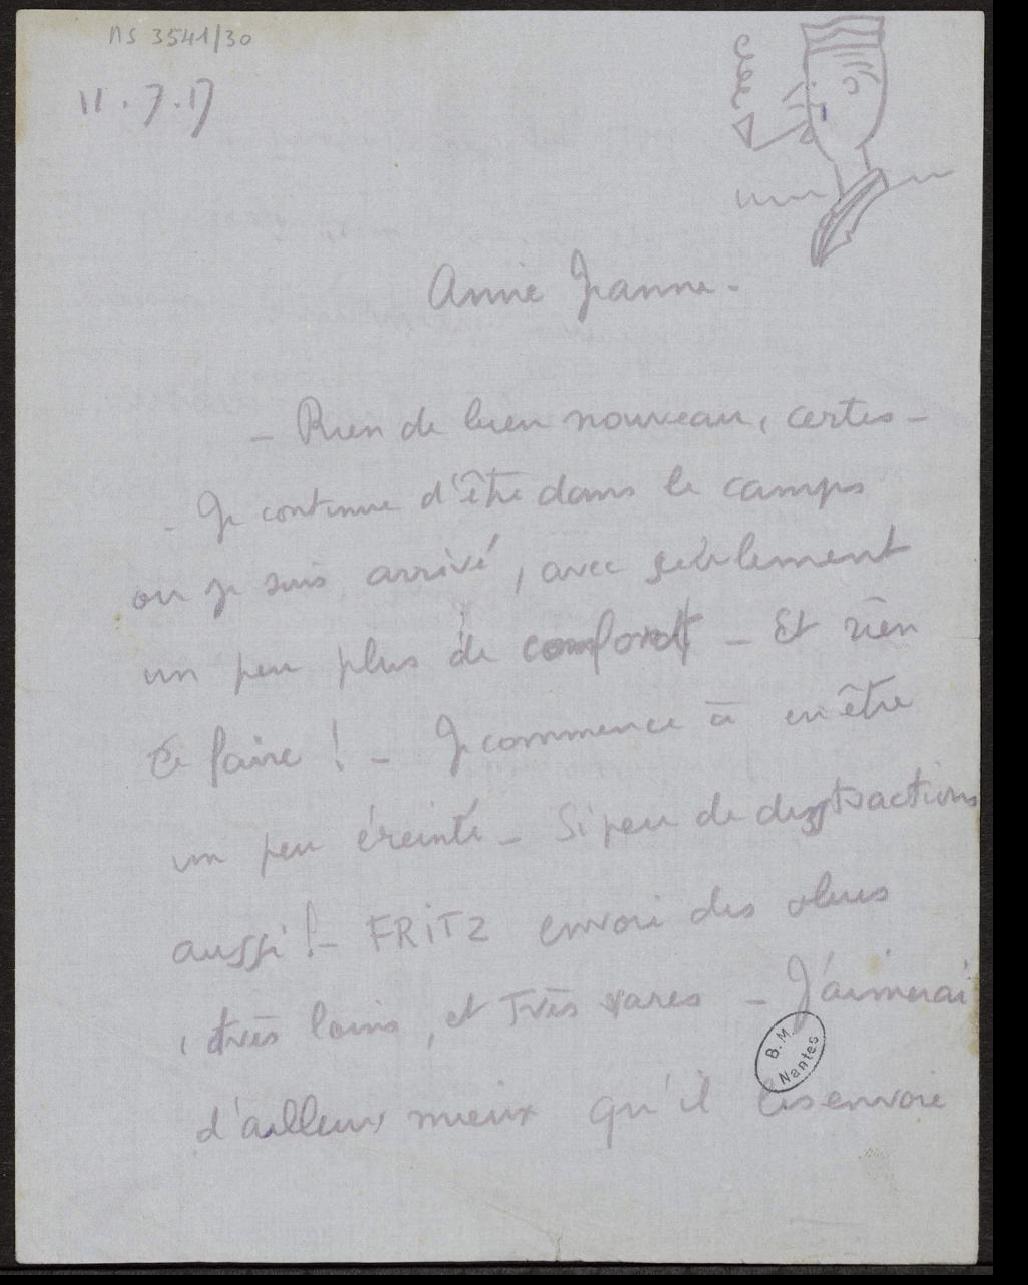 ns 3541/30
11.7.17
Annie Jeanne -
- Rien de bien nouveau, certes -
- Je continue d'être dans le camps
ou je suis arrivé, avec seulement
un peu plus de confort - Et rien
à faire ! - Je commence à en être
un peu éreinté - Si peu de distractions
aussi ! - FRiTZ envoi des obus
très loins, et Très rares - J'aimerai
B. M.
Nantes
d'ailleurs mieux qu'il les envoie